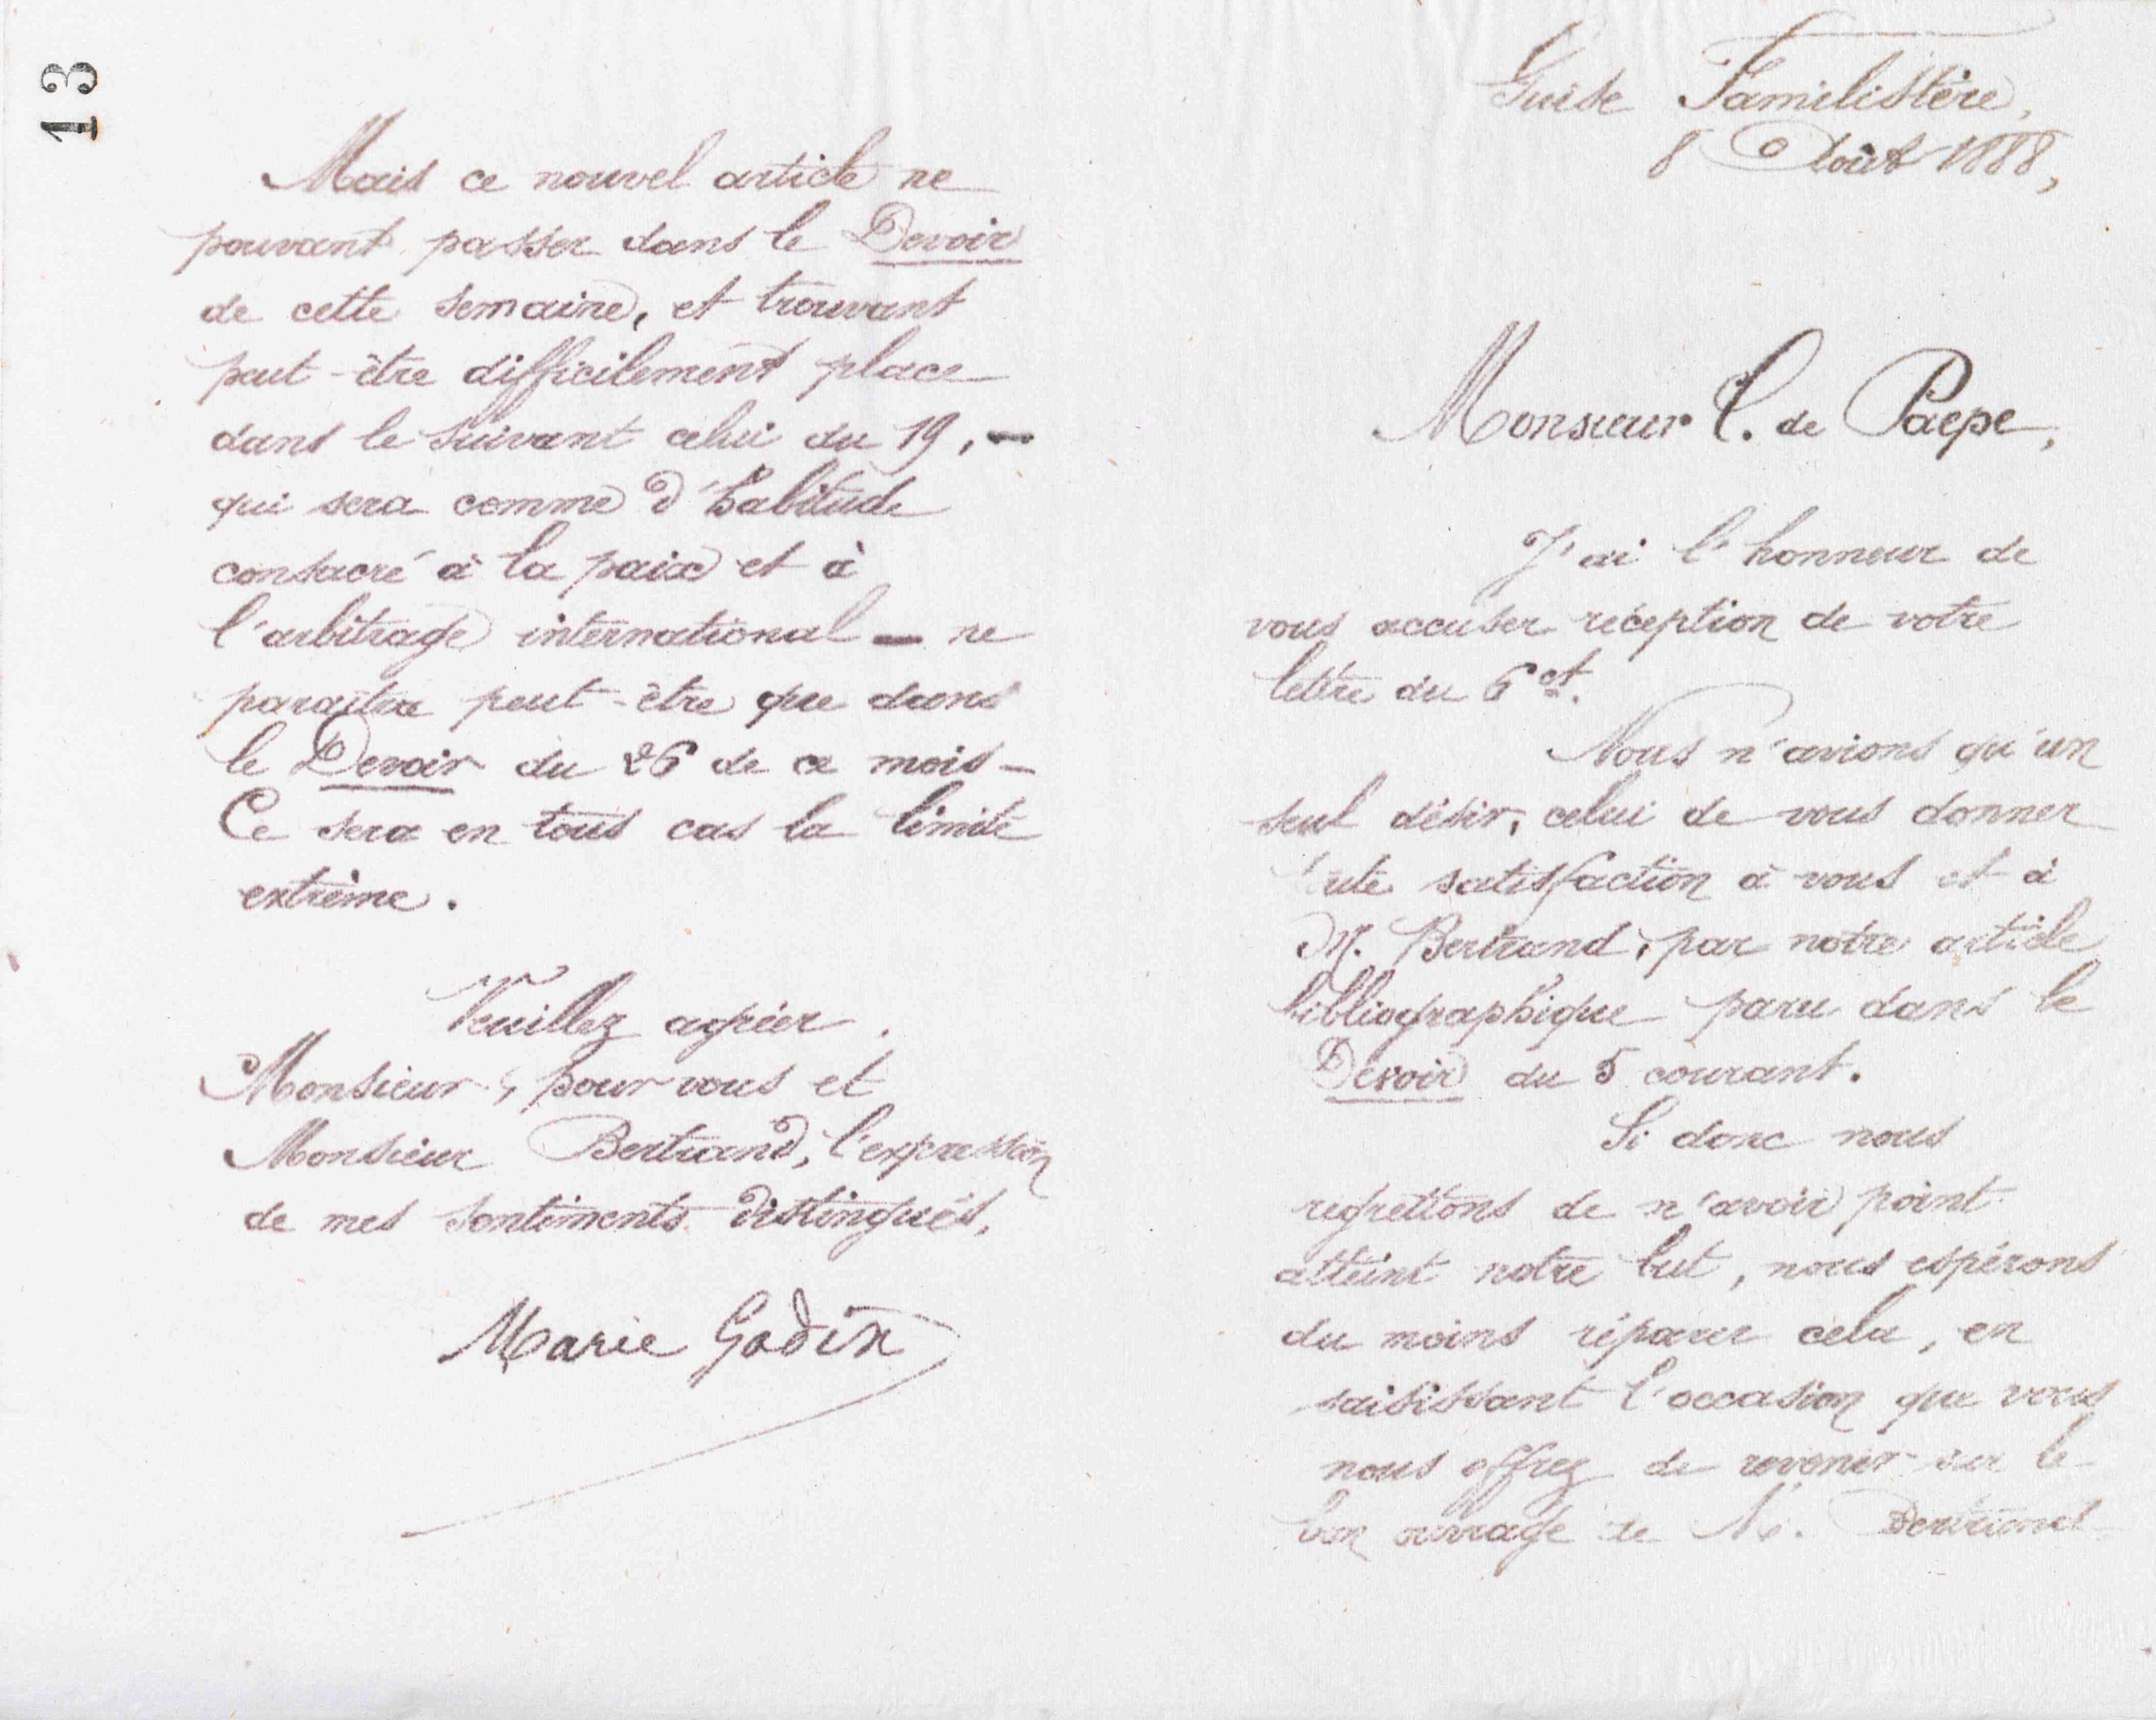 13
Guise Familistère,
8 Août 1888,
Monsieur C. de Paepe,
J'ai l'honneur de
vous accuser réception de votre
lettre du 6 ct.
Nous n'avions qu'un
seul désir, celui de vous donner
satisfaction à vous et à
M. Bertrand, par notre article
bibliographique paru dans le
Devoir du 5 courant.
Si donc nous
regrettons de n'avoir point
atteint notre but, nous espérons
du moins réparer cela, en
saisissant l'occasion que vous
nous offrez de revenir sur le
bon ouvrage de M. Bertrand
Mais ce nouvel article ne
pouvant passer dans le Devoir
de cette semaine, et trouvant
peut-être difficilement place
dans le suivant celui du 19, -
qui sera comme d'habitude
consacré à la paix et à
l'arbitrage international - ne
paraîtra peut-être que dans
le Devoir du 26 de ce mois -
Ce sera en tous cas la limite
extrême.
Veuillez agréer,
Monsieur, pour vous et
Monsieur Bertrand, l'expression
de mes sentiments distingués,
Marie Godin